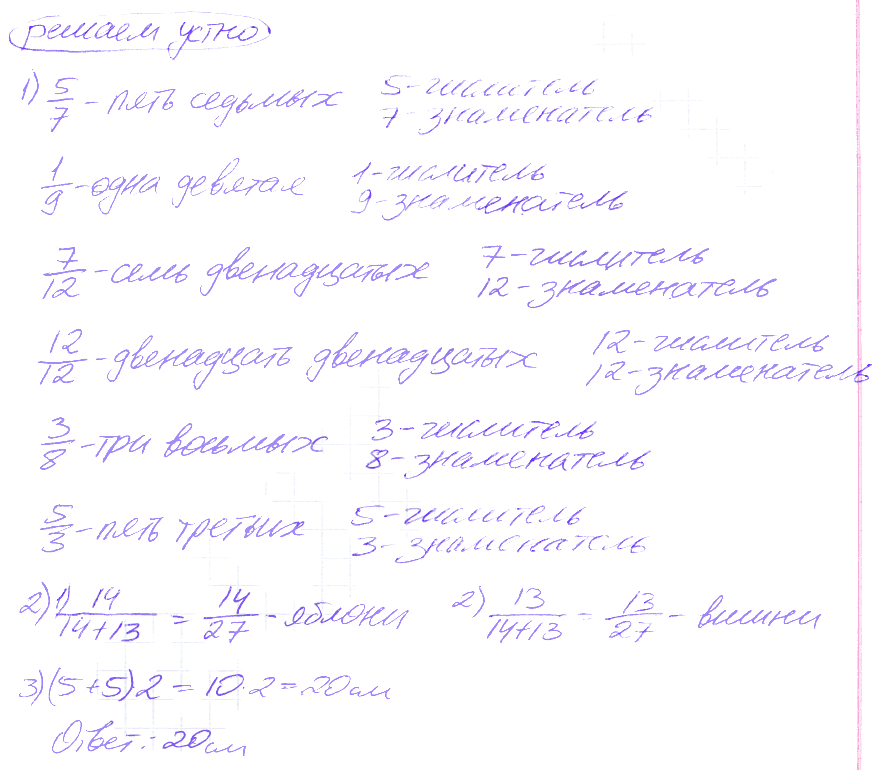 Решаем устно
1) 5/7 - пять седьмых 5 - числитель
7 - знаменатель
1/9 - одна девятая 1 - числитель
9 - знаменатель
7/12 - семь двенадцатых 7 - числитель
12 - знаменатель
12/12 - двенадцать двенадцатых 12 - числитель
12 - знаменатель
3/8 - три восьмых 3 - числитель
8 - знаменатель
5/3 - пять третьих 5 - числитель
3 - знаменатель
2) 1) 14/(14+13) = 14/27 - яблони 2) 13/(14+13) = 13/27 - вишни
3) (5+5)·2 = 10·2 = 20 см
Ответ: 20 см